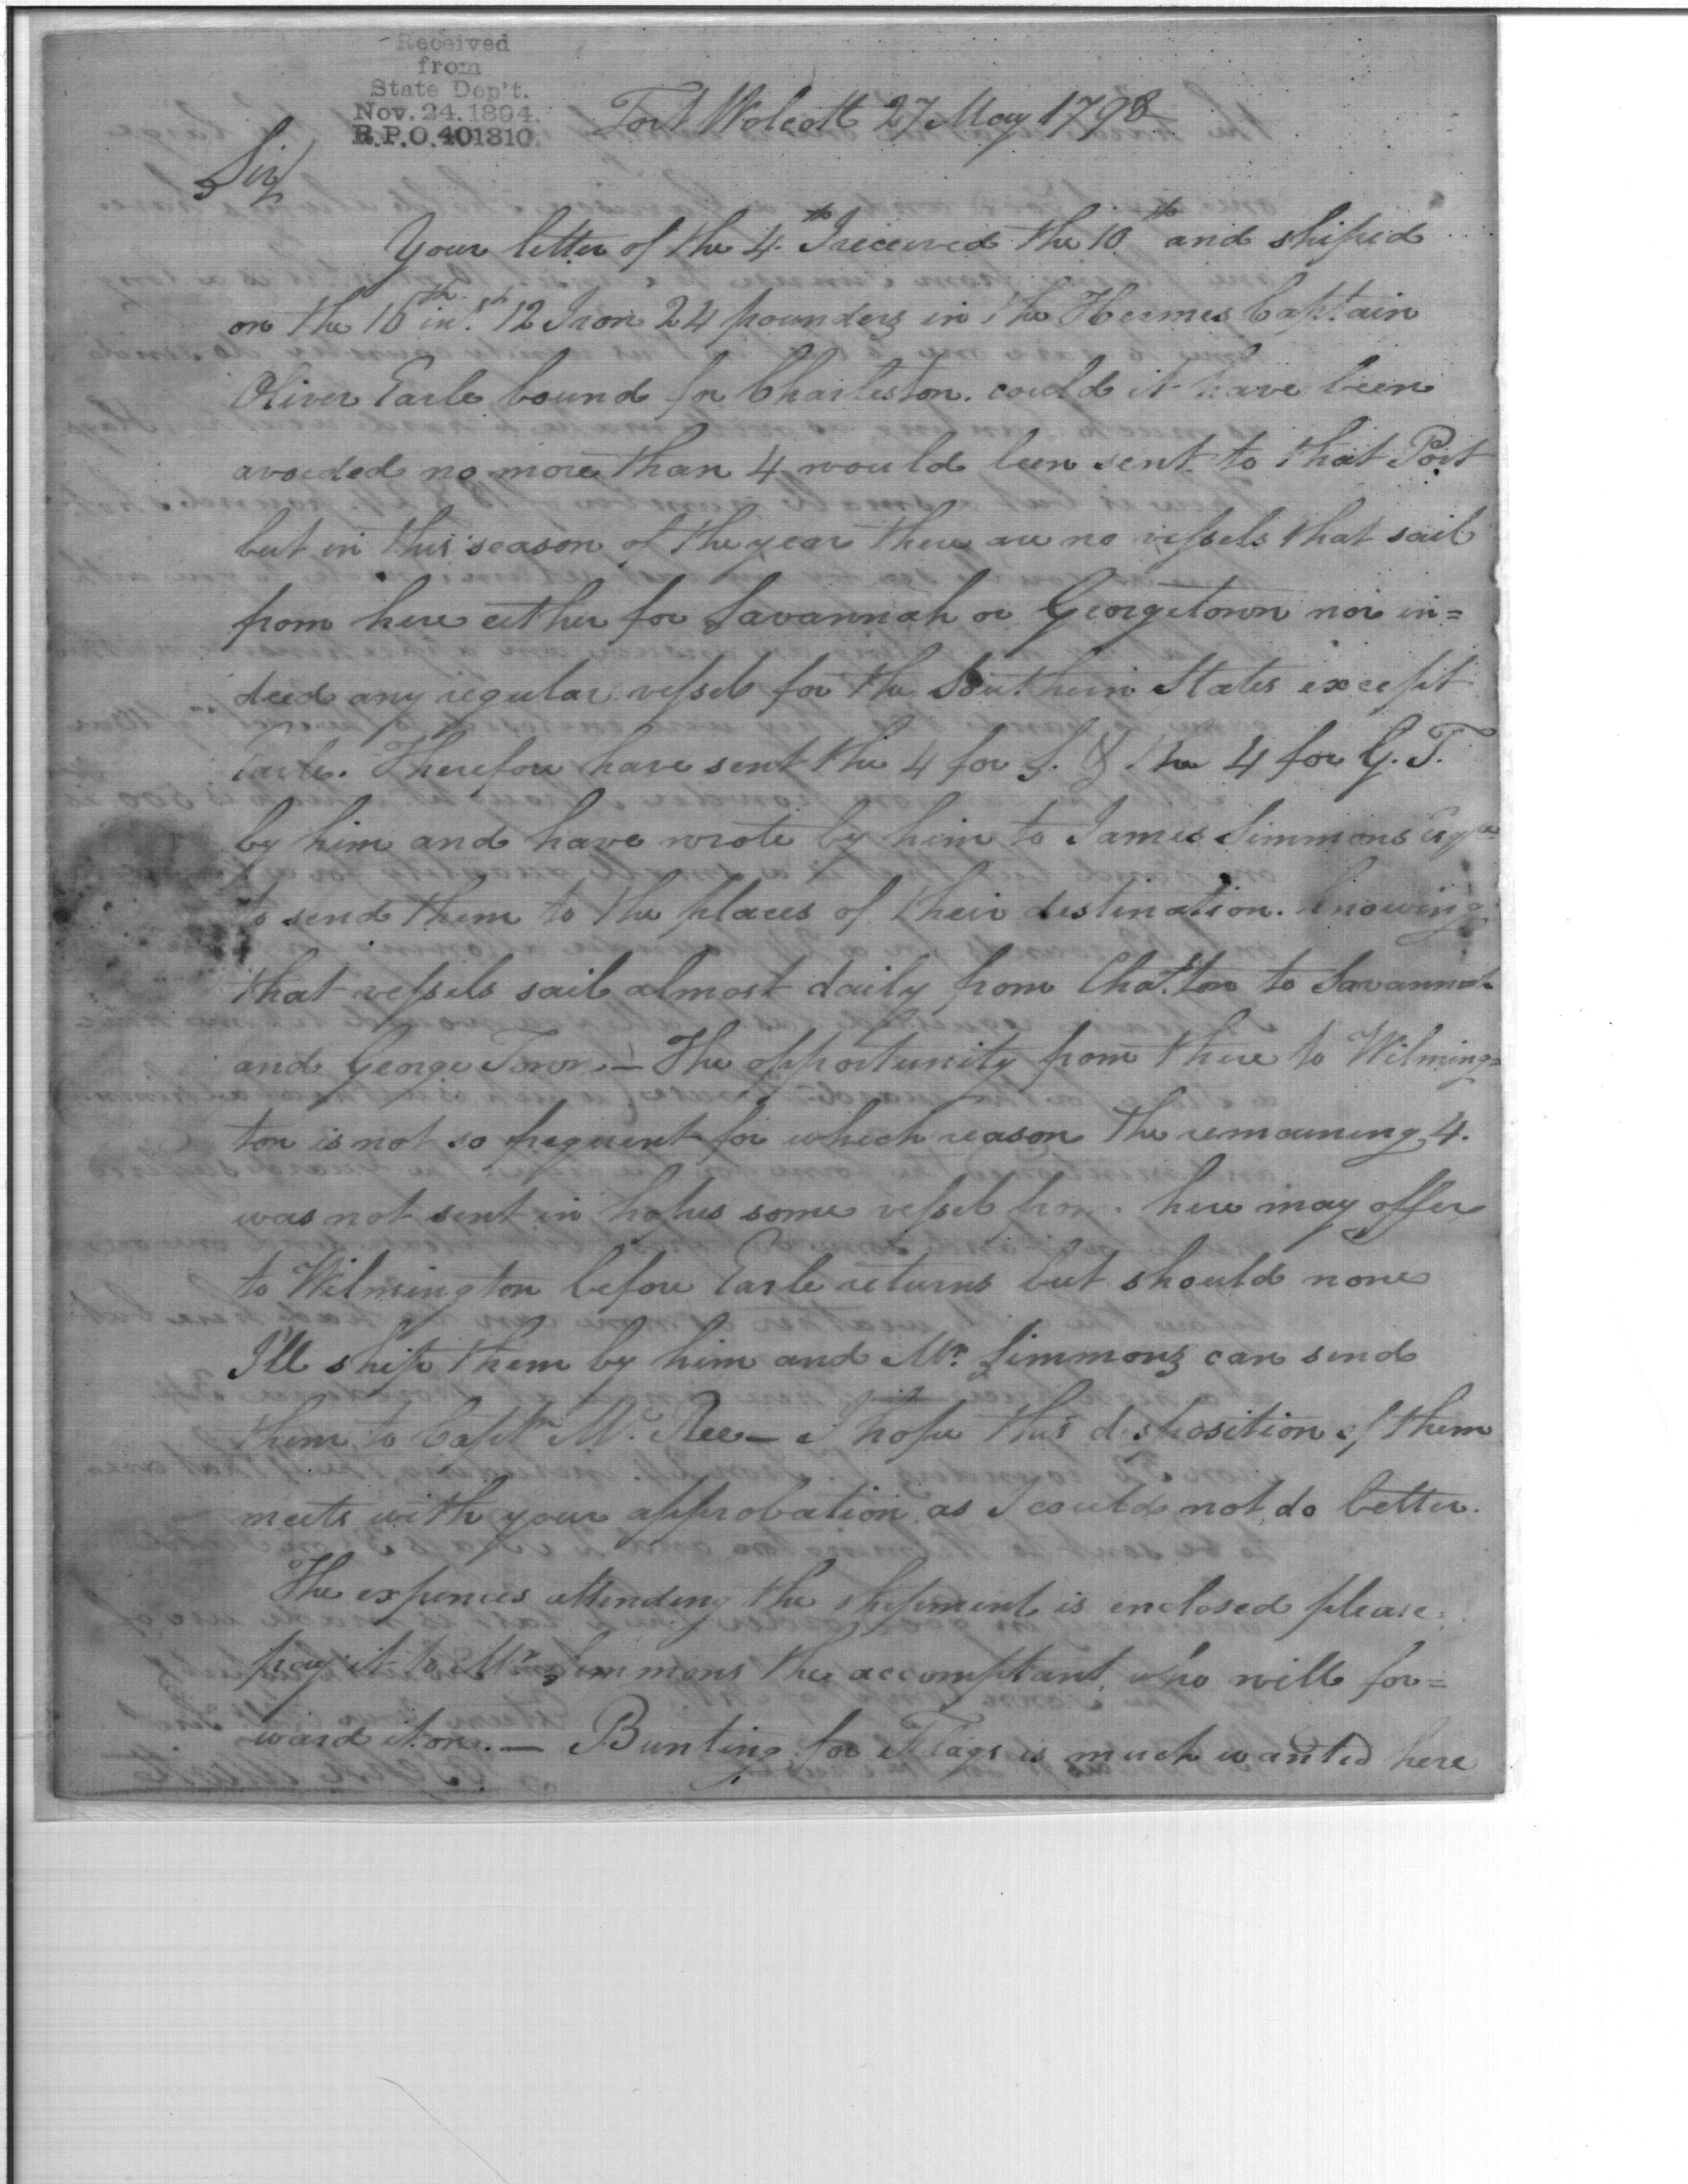 Received
from
State Dep't.
Nov. 24. 1894.
R.P.O. 401310.
Fort Wolcott 27 May 1798
Sir
Your letter of the 4.th I received the 10th and shiped
on the 16th inst. 12 Iron 24 pounders in the Hermes Captain
Oliver Earle bound for Charleston. could it have been
avoided no more than 4 would been sent to that Port
but in this season of the year there are no vessels that sail
from here either for Savannah or Georgetown nor in=
deed any regular vessel for the Southern States except
Earle. Therefore have sent the 4 for S. & the 4 for G. T.
by him and have wrote by him to James Simmons Esqre
to send them to the places of their destination. knowing
that vessels sail almost daily from Cha.s ton to Savannah
and George Town.— The opportunity from there to Wilming=
ton is not so frequent for which reason the remaining 4.
was not sent in hopes some vessel from here may offer
to Wilmington before Earle returns but should none
I'll ship them by him and Mr. Simmons can send
them to Captn Mc. Ree— I hope this disposition of them
meets with your approbation as I could not do better.
The expences attending the shipment is enclosed please
pay it to Mr Simmons the accomptant who will for=
ward it on.— Bunting for Flags is much wanted here